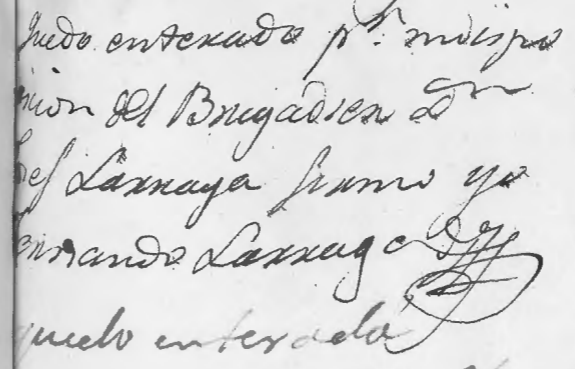 quedo enterado pr. indispo
sicion del Brigadier dn
Josef Larraga firmo yo
Fernando Larraga
quedo enterado